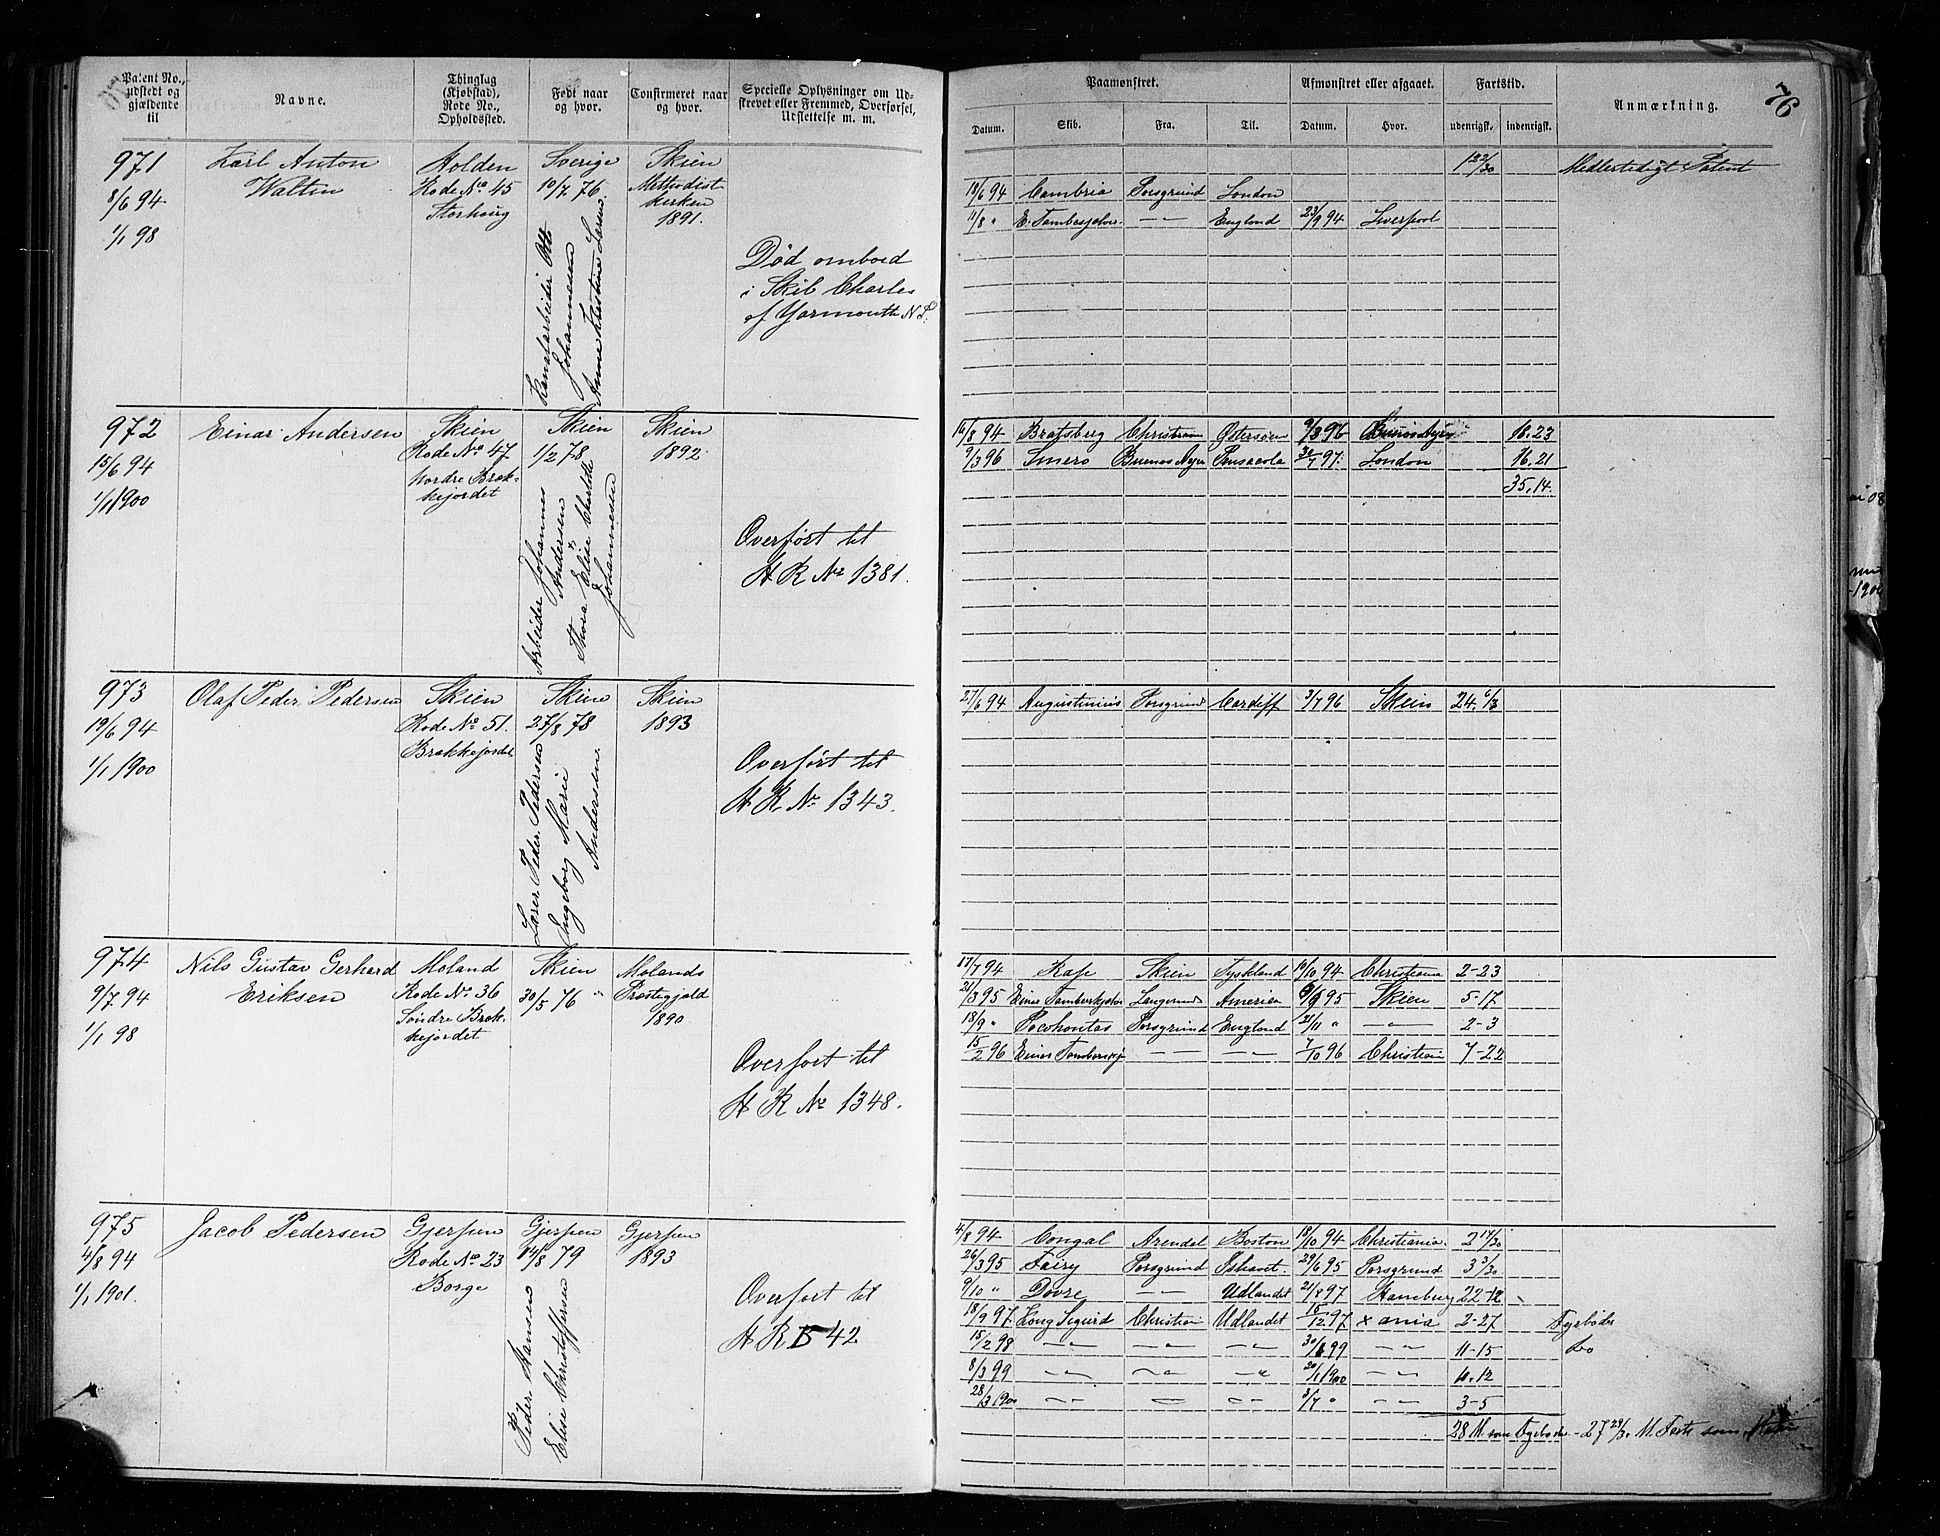 76
Patent No., udstedt og gjældende til
Navne.
Thinglag (Kjøbstad), Rode No., Opholdssted.
Født naar og hvor.
Confirmeret naar og hvor.
Specielle Oplysninger om Udskrevet eller Fremmed, Overførsel, Udslettelse m. m.
Paamønstret.
Afmønstret eller afgaaet.
Fartstid.
Anmærkning.
Datum. Skib. Fra. Til. Datum. Hvor. udenrigsk. indenrigsk.
971
8/6 94
1/1 98
Karl Anton
Waltin
Holden
Rode No 45
Sverige
10/7 76
Kanalarbeider Ott
Johannesen
Anne Kirstine Larsn.
Skien
Methodist
kerken
1891.
Død ombord
i Skib Charles
of Yarmouth N S.
18/6 94 Cambria Porsgrund London
11/8 " — " — England 23/9 94 Liverpool
Midlertidigt Patent
972
15/6 94
1/1 1900
Einar Andersen
Skien
Rode No 47
Nordre Bræk-
kejordet
Skien
1/2 78
Arbeider Johannes
Andersen
&
Thora Elise
Johannesen
Skien
1892
Overført til
H R No 1381.
16/8 94 Bratsberg Østersøen 9/3 96 Buenos Ayres 16.23
9/3 96 Buenos Ayres Pensacola 30/7 97. London 16.21
35.14.
973
19/6 94
1/1 1900
Olaf Peder Pedersen
Skien
Rode No 51.
Brækkejordet
Skien
27/8 78
Peder Pedersen
Ingeborg Marie
Andersen.
Skien
1893
Overført til
H R No 1343.
27/6 94 Augustinius Porsgrund Cardiff 3/7 96 Skien
974
9/7 94
1/1 98
Nils Gustav Gerhard
Eriksen
Moland
Rode No 36
Søndre Bræk-
kejordet
Skien
30/5 76 "
Molands
Præstegjæld
1890
Overført til
H R No 1348.
17/7 94 Kap Skien Tyskland 19/10 94 Christiania 2-23
21/3 95 Langesund Amerika 95 Skien 5-17
18/9 " Pocohontas Porsgrund England 21/11 " — " — 2-3
15/2 96 — " — — " — 7/10 96 Christian 7-22
975
4/8 94
1/1 1901.
Jacob Pedersen
Gjerpen
Rode No 23
Borge
Gjerpen
14/8 79
Peder Hansen
Elise Christoffersen
Gjerpen
1893
Overført til
H R B 42
4/8 94 Congal Arendal Boston 18/10 94 Christiania. 2 14/30
26/3 95 Fairy Porsgrund Ishavet. 29/6 95 Porsgrund 3 3/30
9/10 " Dovre — " — Udlandet 21/8 97 Hamburg 22-12
18/9 97. Kong Sigurd Christian Udlandet 15/12 97 Xania 2-27 Fyrbøder
15/2 98 — " — — " — — " — — " — 11-15 Do
8/3 99 — " — — " — — " 20/1 1900 — " —
28/3 1900 — " — — " — — " — 3/7 " — " — 3-5
28 M. som Fyrbøder - 27 29/30 M. Farts som